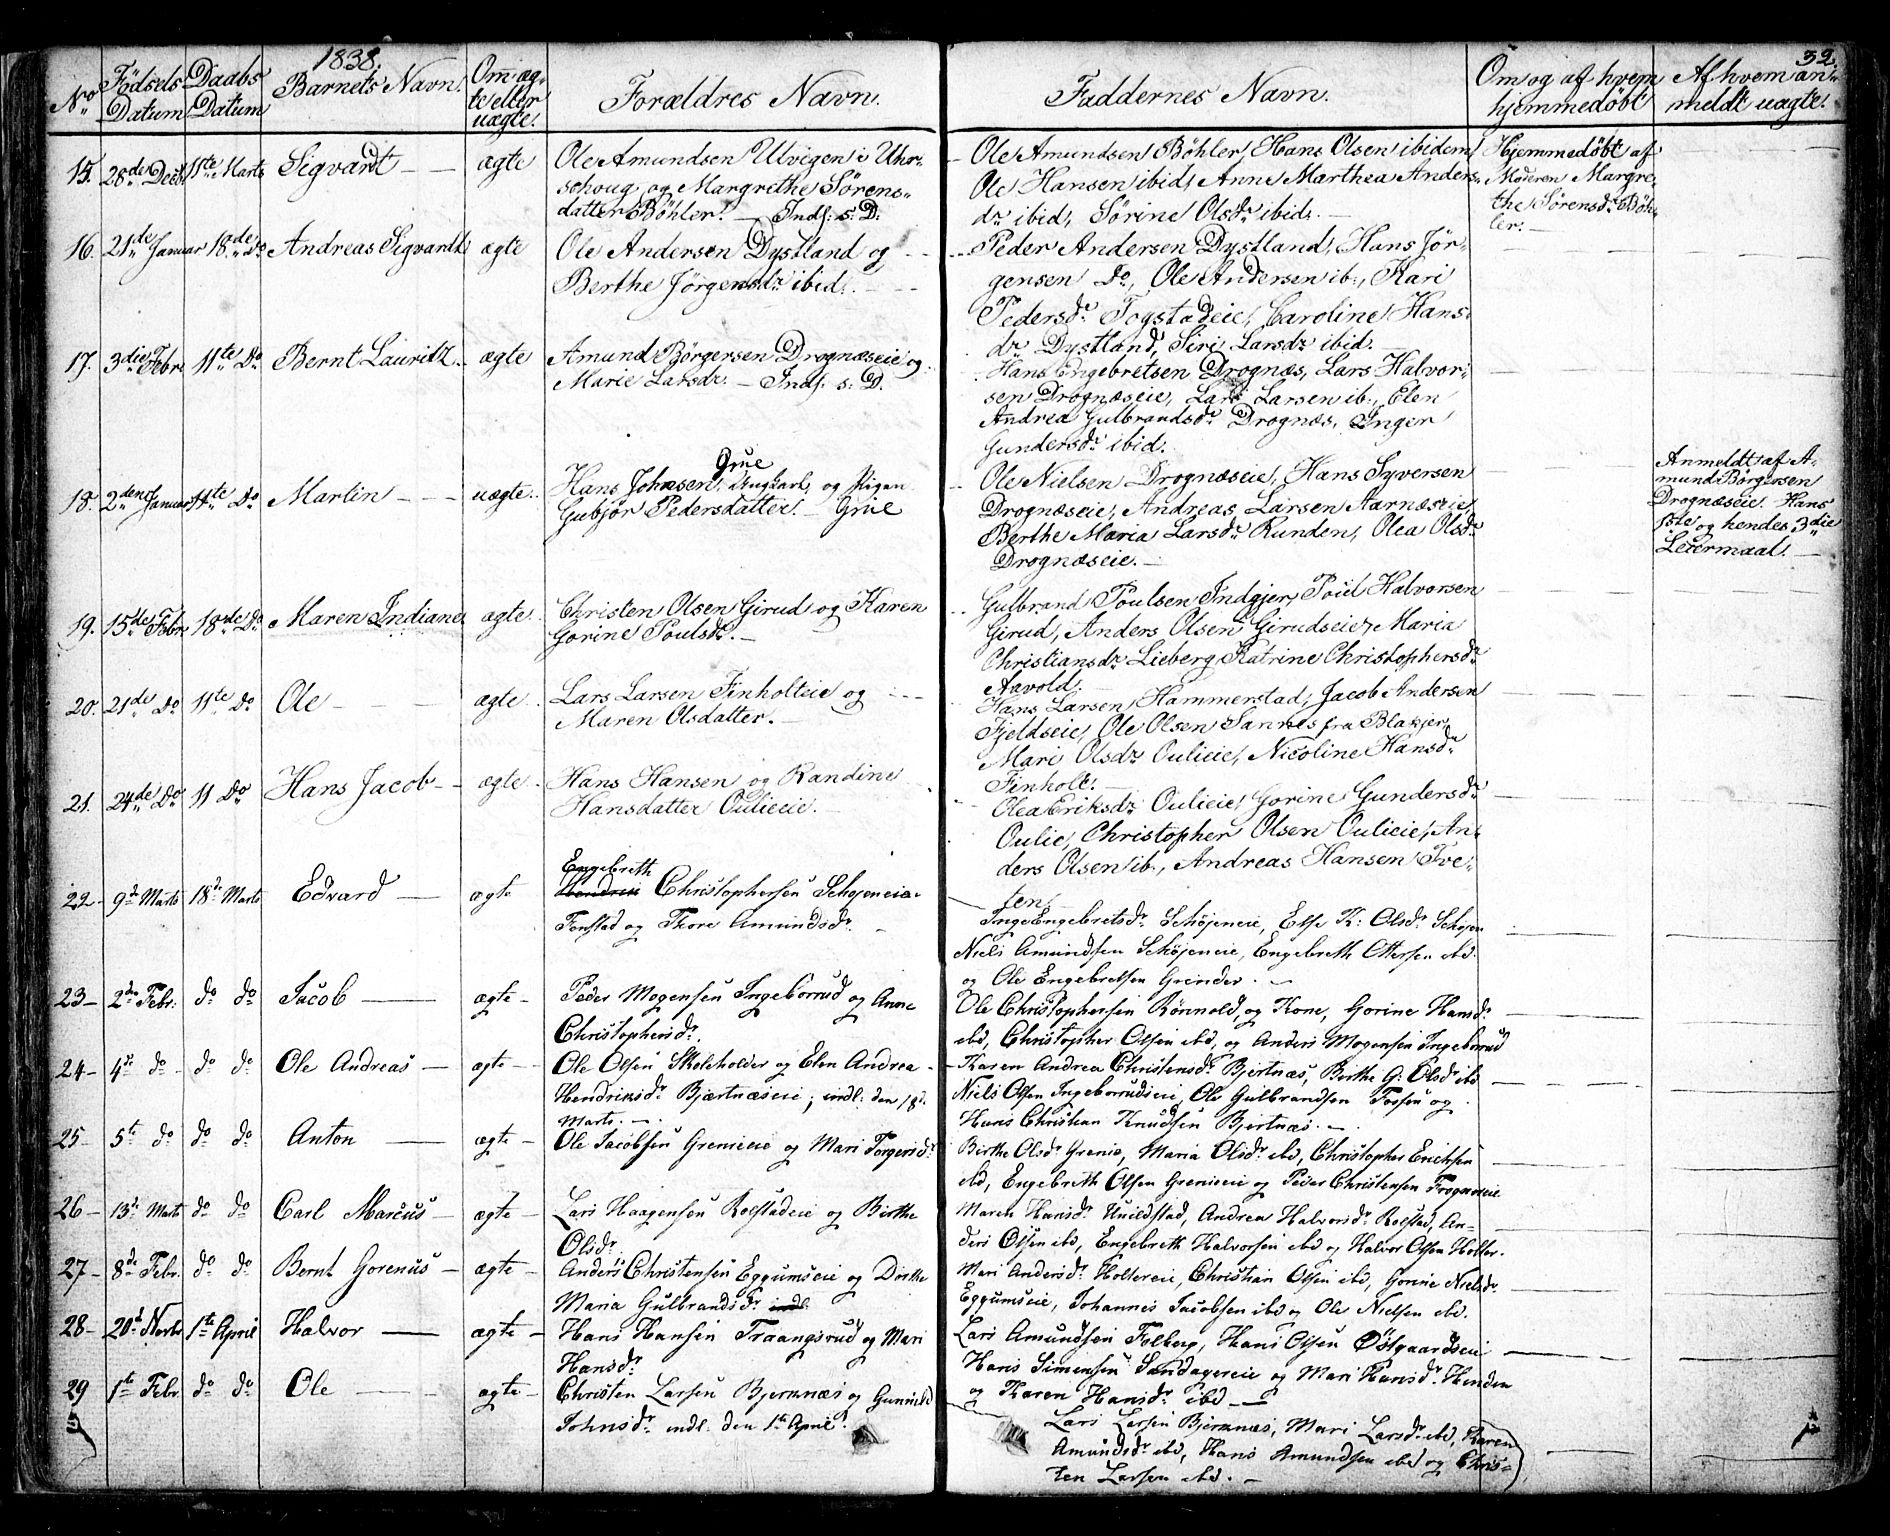 1838.
32.
No
Fødsels Datum
Daabs Datum
Barnets Navn.
Om ægte eller uægte.
Forældres Navn.
Faddernes Navn.
Om og af hvem hjemmedøbt
Af hvem anmeldt uægte.
15. 28de Decbr 11te Marts Sigvardt — ægte
Ole Amundsen Ulvigen i Uhr-
schoug og Margrethe Sørens-
datter Bøhler. — Indl: s: D:
Ole Amundsen Bøhler, Hans Olsen ibidem
Ole Hansen ibid, Anne Marthea Anders-
dr ibid, Sørine Olsdr ibid. —
Hjemmedøbt af
Moderen Margre-
the Sørensdr Bøh-
ler. —
16. 21de Januar 18de Do Andreas Sigvardt ægte
Ole Andersen Dystland og
Berthe Jørgensdr ibid.
Peder Andersen Dystland, Hans Jør-
gensen Do, Ole Andersen ib:, Kari
Pedersdr Togstadeie, Caroline Hans-
dr Dystland, Siri Larsdr ibid. —
17. 3die Febr 11te Do Bernt Lauritz ægte
Amund Børgersen Drognæseie og
Marie Larsdr. — Indl: s: D.
Hans Engebretsen Drognæs, Lars Halvor-
sen Drognæseie, Lars Larsen ib:, Elen
Andrea Gulbrandsdr Drognæs, Inger
Gundersdr ibid.
18. 2den Januar 11te Do Martin — uægte
Grue
Hans Johnsen, Ungkarl, og Pigen
Gubjør Pedersdatter. — Grue
Ole Nielsen Drognæseie, Hans Syversen
Drognæseie, Andreas Larsen Aarnæseie
Berthe Maria Larsdr Runden, Olea Olsdr
Drognæseie. —
Anmeldt af A-
mund Børgersen
Drognæseie. Hans
1ste og hendes 3die
Leiermaal. —
19. 15de Febr 18de Do Maren Indiane ægte
Christen Olsen Girud og Karen
Gorine Poulsdr. —
Gulbrand Poulsen Indgjer, Poul Halvorsen
Girud, Anders Olsen Girudseie, Maria
Christiansdr Lieberg, Katrine Christophersdr
Aavold. —
20. 21de Do 11te Do Ole — ægte
Lars Larsen Finholteie og
Maren Olsdatter. —
Hans Larsen Hammerstad, Jacob Andersen
Fjeldseie, Ole Olsen Sannes fra Blakjer,
Mari Olsdr Oulieie, Nicoline Hansdr
Finholt.
21. 24de Do 11 Do Hans Jacob — ægte
Hans Hansen og Randine
Hansdatter Oulieie. —
Olea Eriksdr Oulieie, Gorine Gundersdr
Oulie, Christopher Olsen Oulieie, An-
ders Olsen ib:, Andreas Hansen Tve-
ten.
22 9de Marts 18de Marts Edvard — ægte
Engebreth
Christophersen Schøjeneie
Fonstad og Thore Amundsdr. —
Inge Engebretsdr Schøjeneie, Else K: Olsdr Schøjen
Niels Amundsen Schøjeneie, Engebreth Ottersen ibd.
og Ole Engebretsen Grinder. —
23 2de Febr. do do Jacob — ægte
Peder Mogensen Ingeborrud og Anne
Christophersdr.
Ole Christophersen Rønnold, og Kone, Gorine Hansdr
ibd, Christopher Olsen ibd, og Anders Mogensen Ingeborrud
24 4de do do do Ole Andreas — ægte
Ole Olsen Skoleholder og Elen Andrea
Hendriksdr Bjærtnæseie; indl: den 18de
Marts. —
Karen Andrea Christensdr Bjertnæs, Berthe G: Olsdr ibd
Niels Olsen Ingeborrudseie, Ole Gulbrandsen Fossen og
Hans Christian Knudsen Bjertnæs. —
25 5te do do do Anton — ægte
Ole Jacobsen Grenieie og Mari Torgersdr
Birthe Olsdr Grenie, Maria Olsdr ibd, Christopher Erichsen
ibd, Engebreth Olsen Grenieie og Peder Christensen Frognæseie
26 13de Marts do do Carl Marcus — ægte
Lars Haagensen Rolstadeie og Birthe
Olsdr
Maren Hansdr Huildstad, Andrea Halvorsdr Rolstad, An-
ders Olsen ibd, Engebreth Halvorsen ibd og Halvor Olsen Holter.
27 8de Febr. do do Bernt Gorenus — ægte
Anders Christensen Eggumseie og Dorthe
Maria Gulbrandsdr indl:
Mari Andersdr Holtereie, Christian Olsen ibd, Gorine Nielsdr
Eggumseie, Johannes Jacobsen ibd og Ole Nielsen ibd.
28 20de Marts 1te April Halvor — ægte
Hans Hansen Traangsrud og Mari
Hansdr
Lars Amundsen Folberg, Hans Olsen Østgaardseie
Hans Simensen Sandagereie og Mari Hansdr Henden
og Karen Hansdr ibd —
29 1te Febr do do Ole — ægte
Christen Larsen Bjerknæs og Gunnild
Johnsdr indl: den 1te April.
Lars Larsen Bjerknæs, Mari Larsdr ibd, Karen
Amundsdr ibd, Hans Amundsen ibd og Chris-
ten Larsen ibd. —